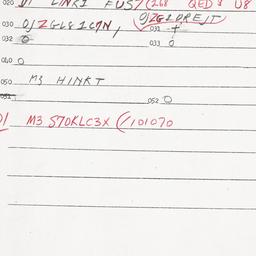 020 01 LINK1 FUS7(268 QED8 U8
030 01ZGLS1C7N, 01ZG1DREJT
031 +
032 0
033 0
040 0
050 M3 HINKT
051
052 0
01 M3 S70KLC3X (/101070